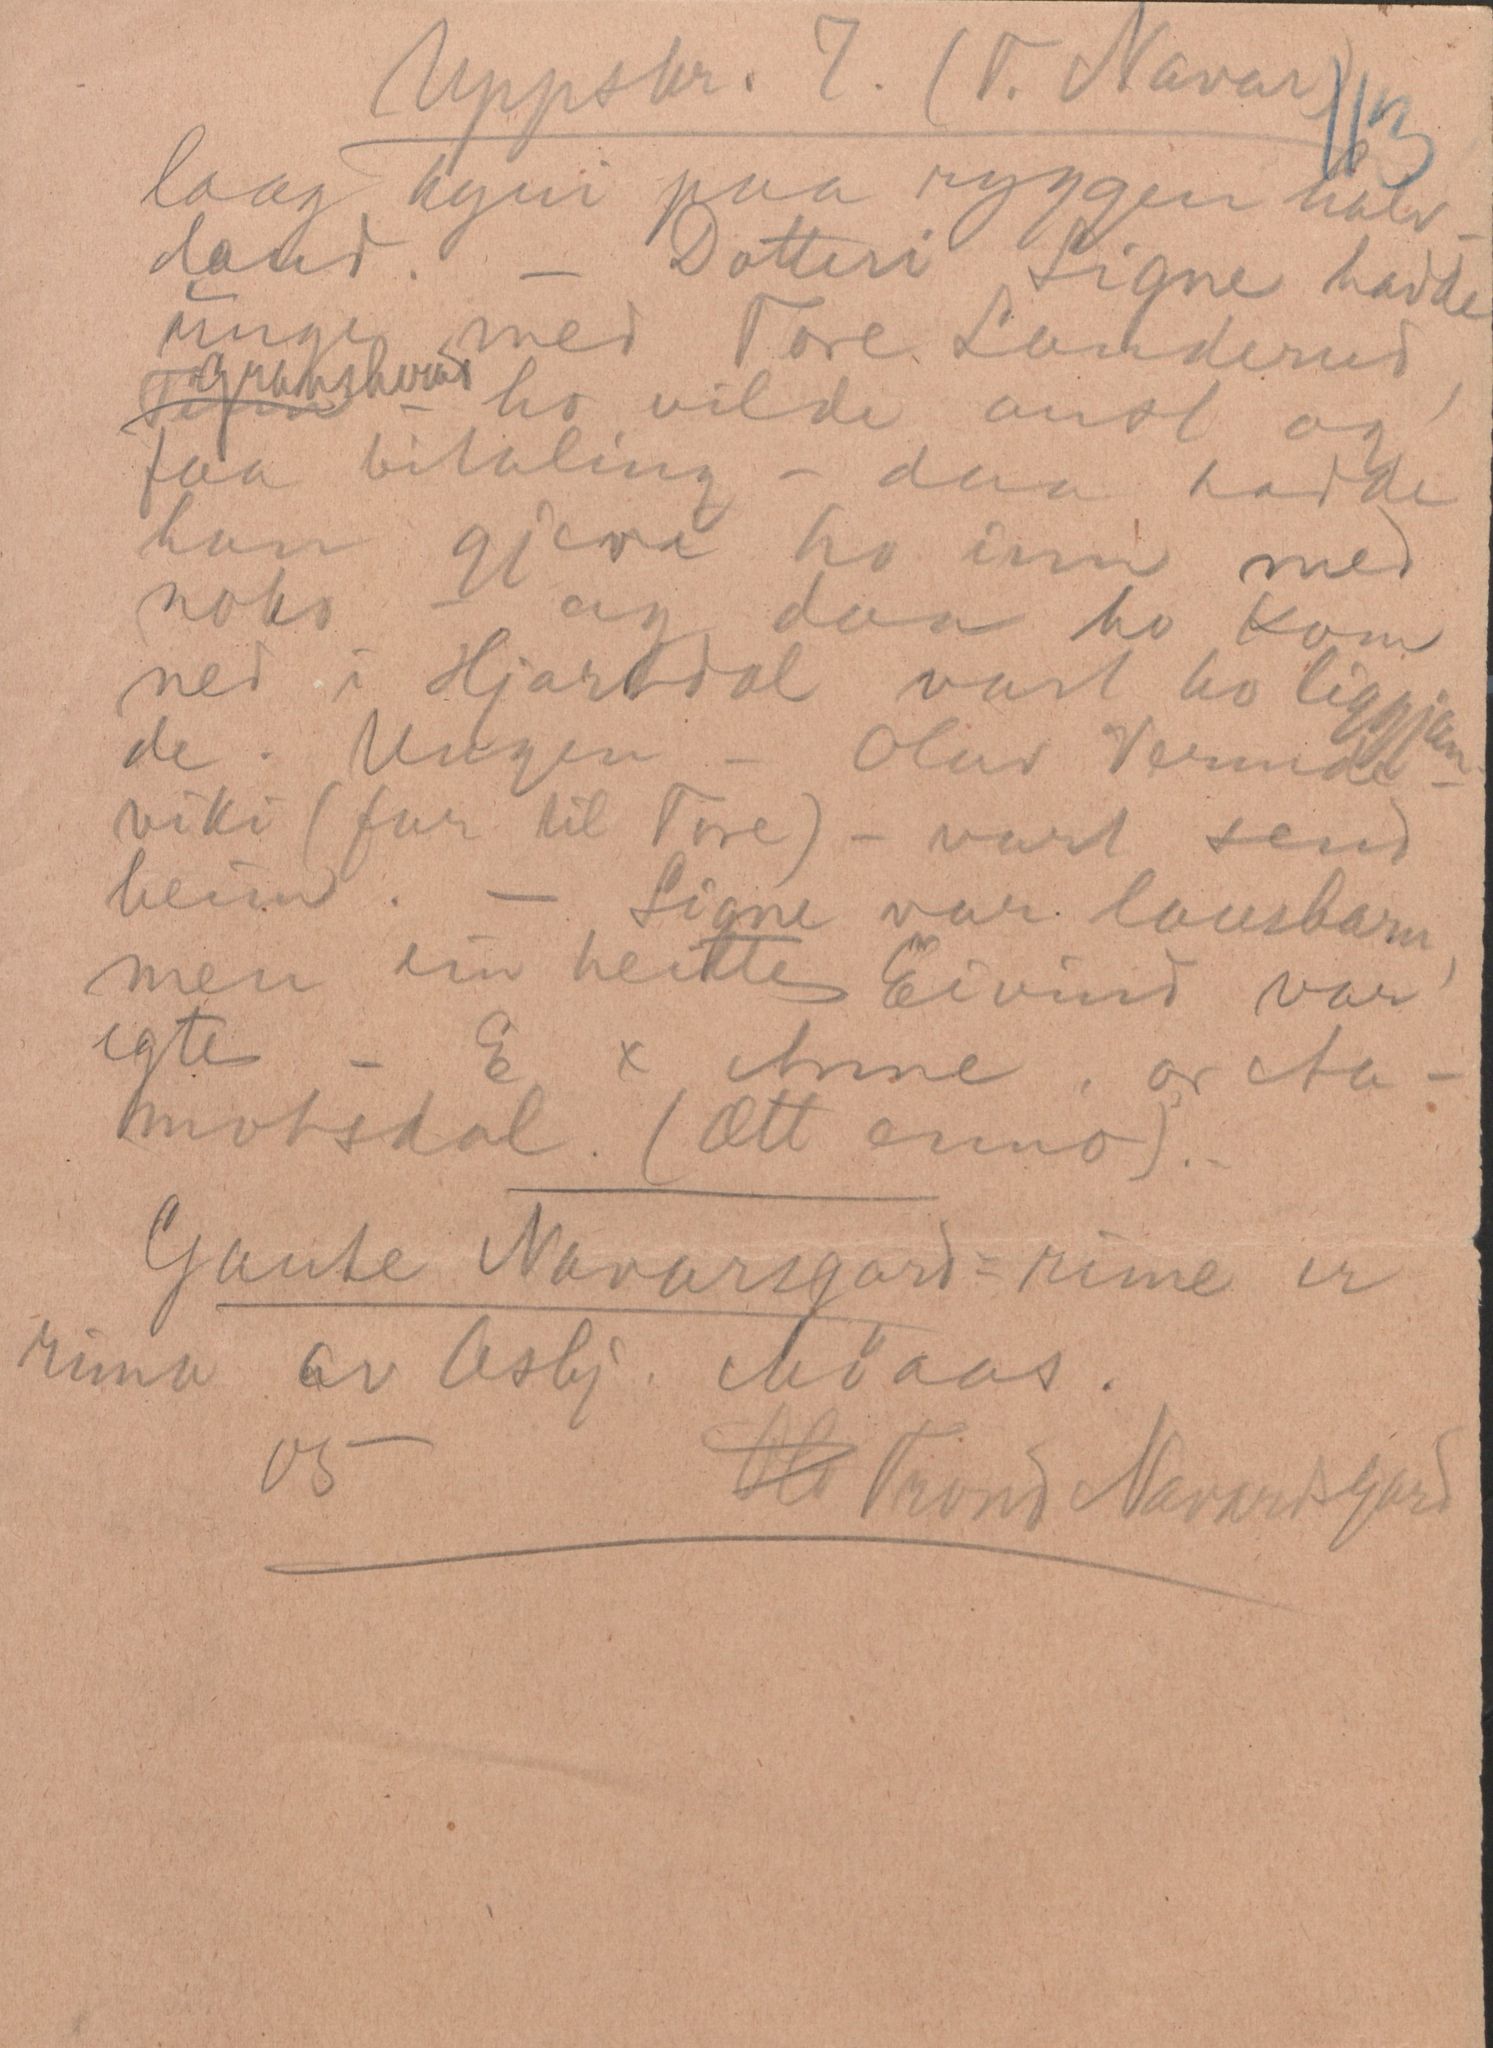 Uppskr. 7. (T. Navar)
113
laag kyni paa ryggen halv-
daud. – Dotteri Signe hadde
unge med Tore Landerud,
Gransherad – ho vilde aust og
faa bitaling – daa hadde
han gjeve ho inn med
noko – og daa ho kom
ned i Hjartdal vart ho liggjan-
de. Ungen – Olav Vermde-
viki (far til Tore) – vart send
heim. – Signe var lausbarn,
men ein heitte Eivind var
egte – E x Anne, or Aa-
motsdal. (Ætt enno).-
Gaute Navarsgard-rime er
rima av Asbj. Möaas.
05 Trond Navardsgard